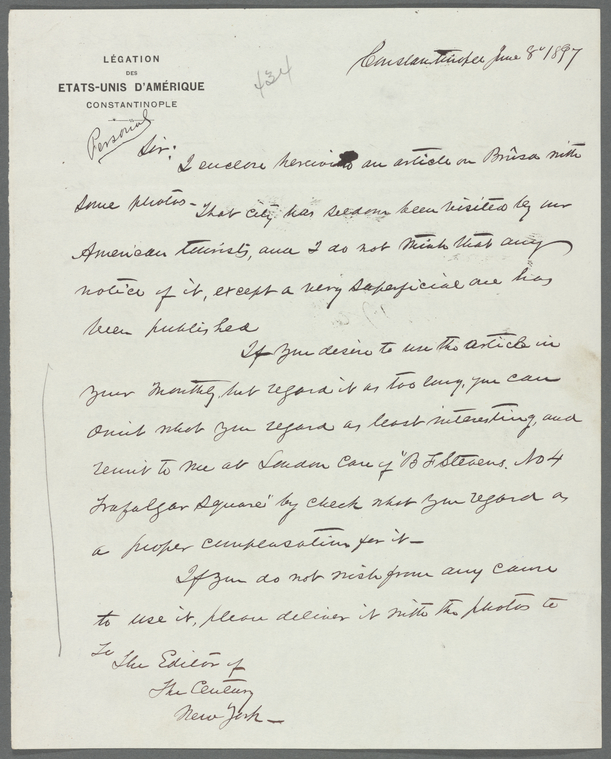 LÉGATION
DES
ETATS-UNIS D'AMÉRIQUE
CONSTANTINOPLE
434
Constantinople June 8" 1897
Personal
Sir:
I enclose herewith an article on Brûsa with
some photos - That city has seldom been visited by our
American tourists, and I do not think that any
notice of it, except a very superficial one has
been published
If you desire to use the article in
your Monthly, but regard it as too long, you can
omit what you regard as least interesting, and
remit to me at London Care of "B F Stevens. No 4
Trafalgar Square" by check what you regard as
a proper compensation for it -
If you do not wish from any cause
to use it, please deliver it with the photos to
To
The Editor of
The Century
New York -